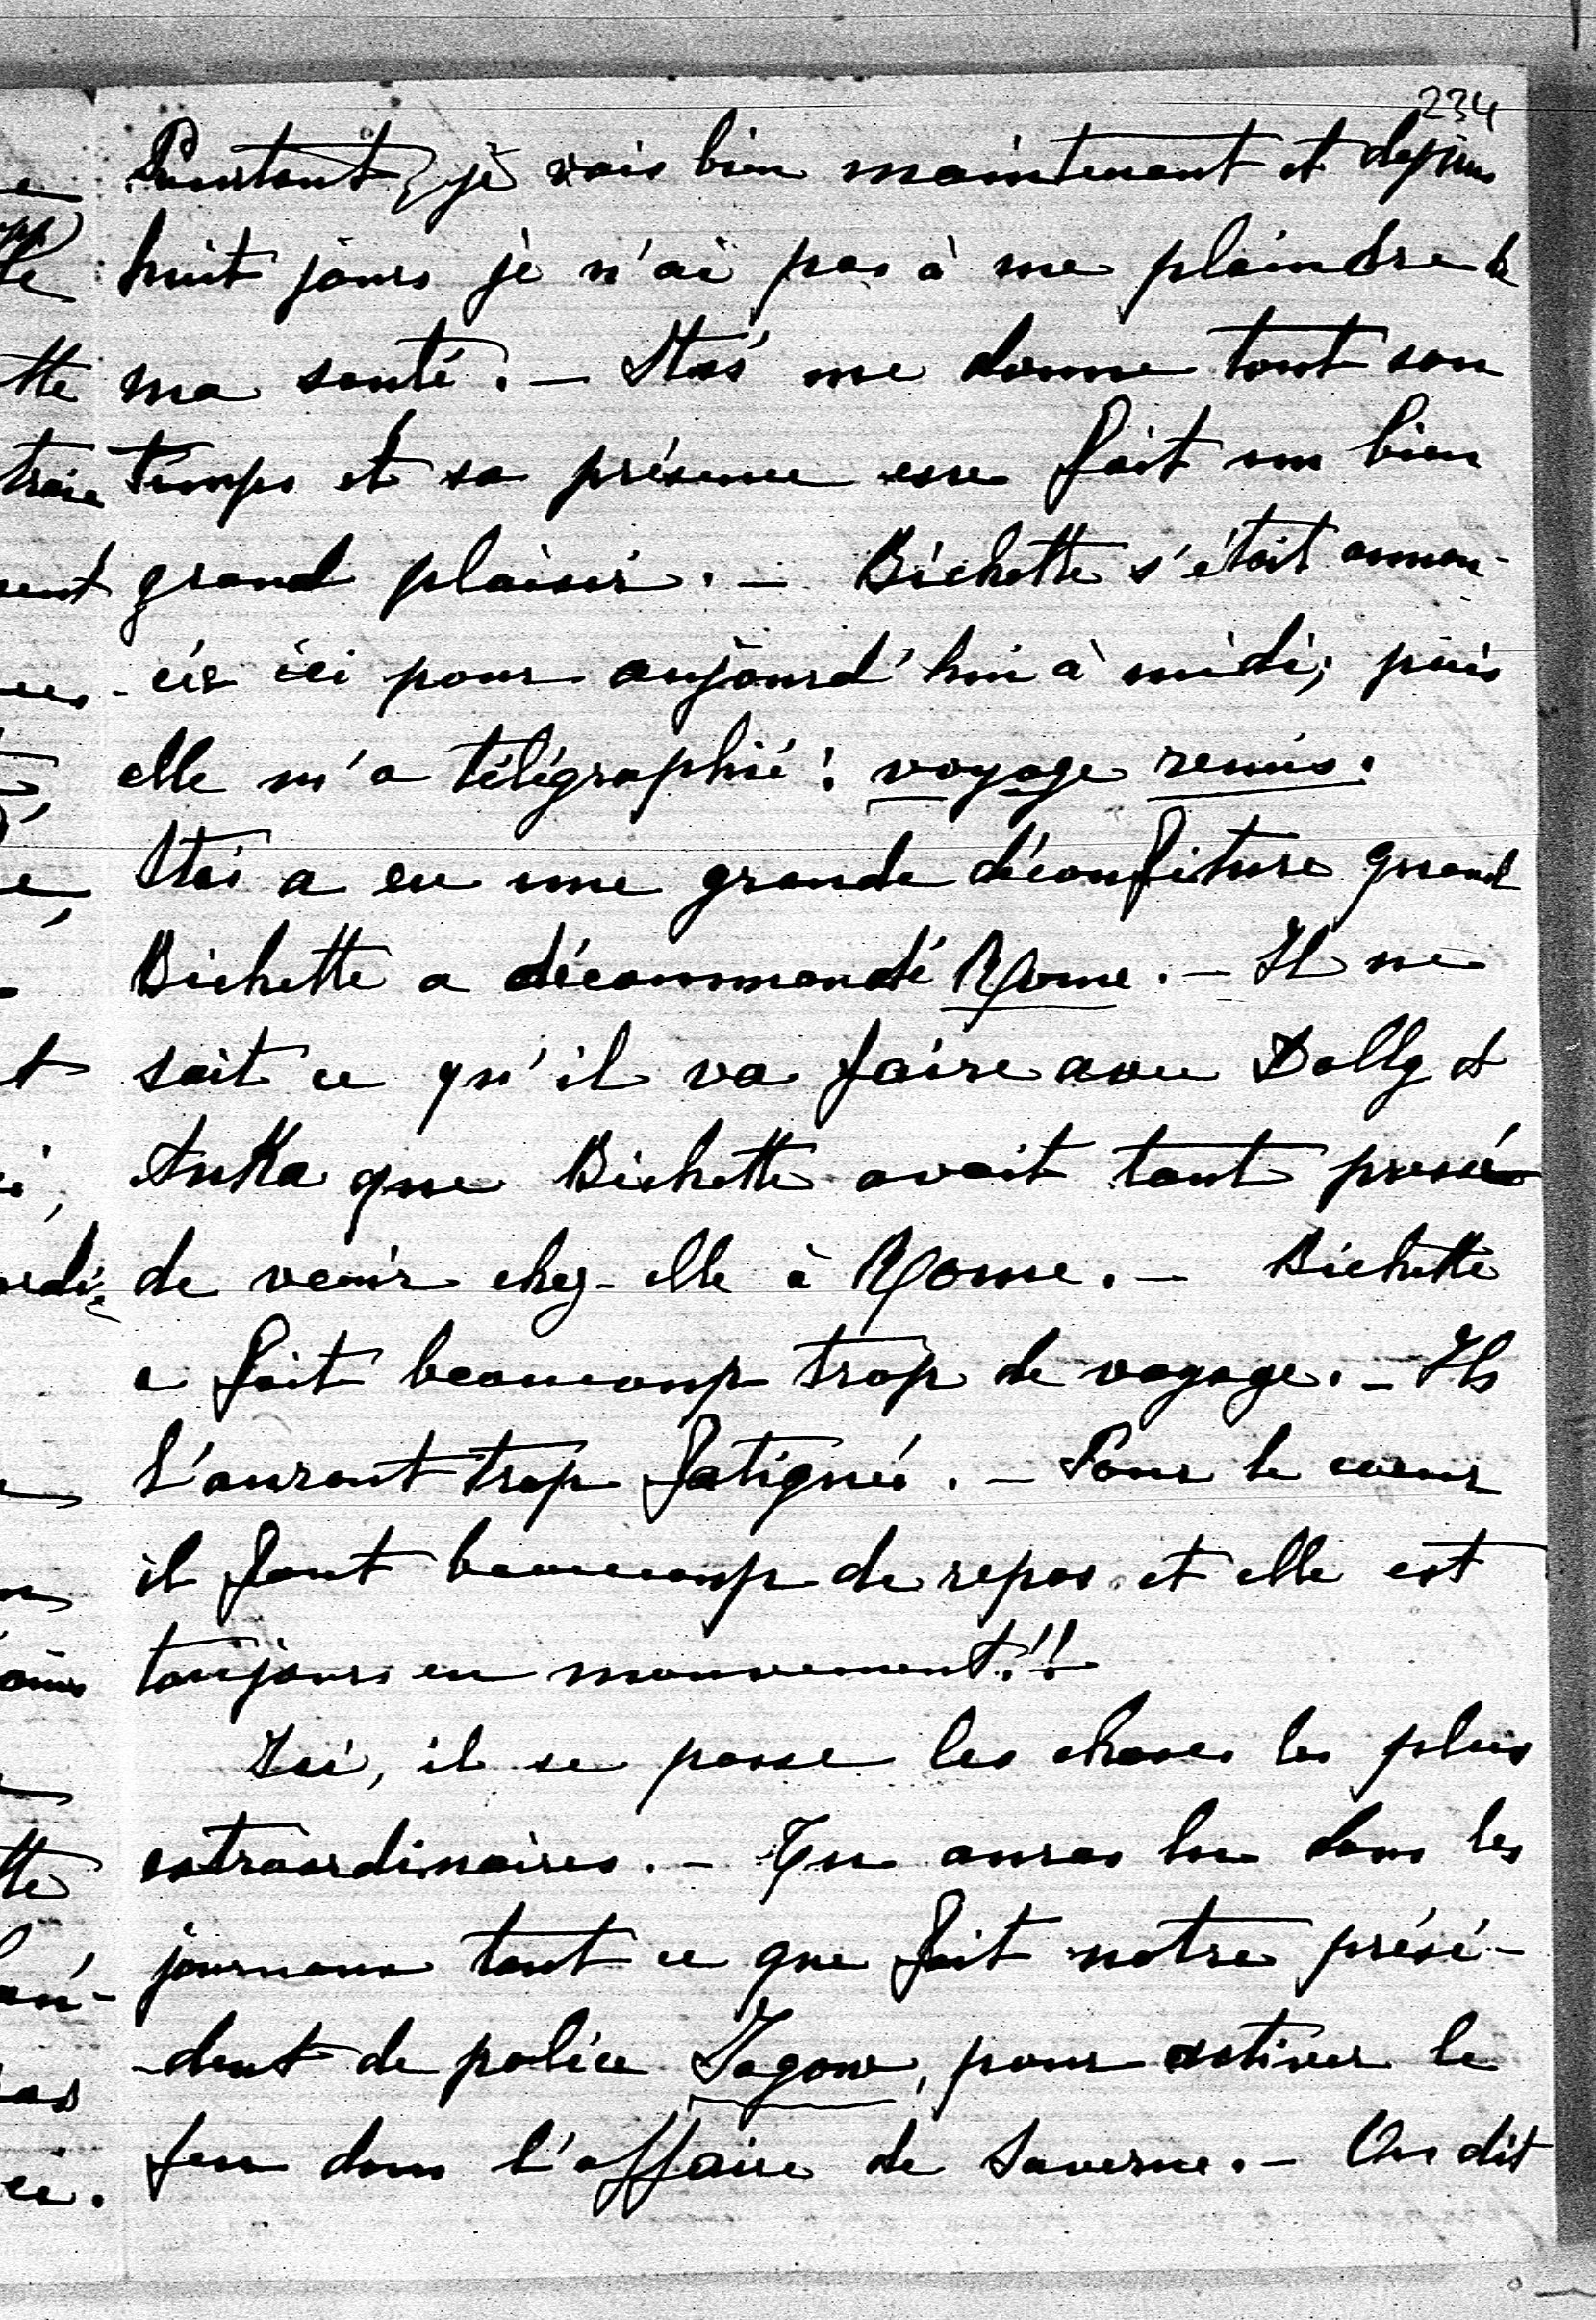 234
Pourtant, je vais bien maintenant et depuis
huit jours je n'ai pas à me plaindre de
ma santé. — Staś me donne tout son
temps et sa présence me fait un bien
grand plaisir. — Bichette s'était annon-
cée ici pour aujourd'hui à midi; puis
elle m'a télégraphié: voyage remis.
Staś a eu une grande déconfiture quand
Bichette a décommandé Rome. — Il ne
sait ce qu'il va faire avec Dolly et
Anka que Bichette avait tant pressés
de venir chez-elle à Rome. — Bichette
a fait beaucoup trop de voyage. — Ils
l'auront trop fatiguée. — Pour le coeur
il faut beaucoup de repos et elle est
toujours en mouvement!!
Ici, il se passe les choses les plus
extraordinaires. — Tu auras lu dans les
journaux tout ce que fait notre prési-
-dent de police Jagow, pour attiser le
feu dans l'affaire de Saverne. — On dit